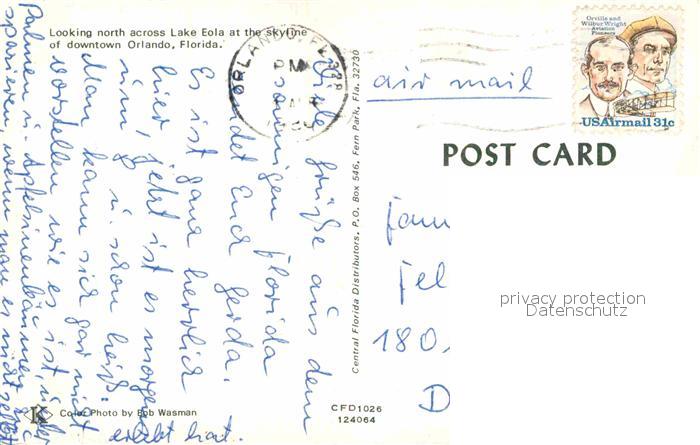 Looking north across Lake Eola at the skyline
of downtown Orlando, Florida.
Viele Grüße aus dem
sonnigen Florida
sendet Euch Gerda.
Es ist ganz herrlich
hier, jetzt ist es morgens
u. schon heiß.
Man kann sich gar nicht
vorstellen wie es ist, unter
Palmen u. Apfelsinenbäumen
spazieren, wenn man es nicht selbst
erlebt hat.
Color Photo by Bob Wasman
K
Central Florida Distributors, P.O. Box 546, Fern Park, Fla. 32730
ORLANDO, FL 328
PM
air mail
Orville and
Wilbur Wright
Aviation
Pioneers
USAirmail 31c
POST CARD
Fam
Fel
180.
D
CFD1026
124064
privacy protection
Datenschutz